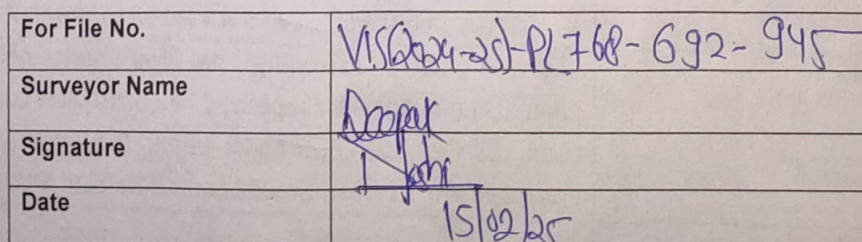 For File No. VIS(2024-25)-PL768-692-945
Surveyor Name Deepak
Signature Joshi
Date 15/02/25